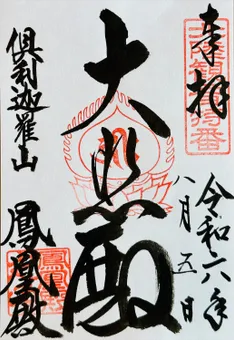 奉拝
令和六年
八月五日
大悲殿
倶利迦羅山
鳳凰殿